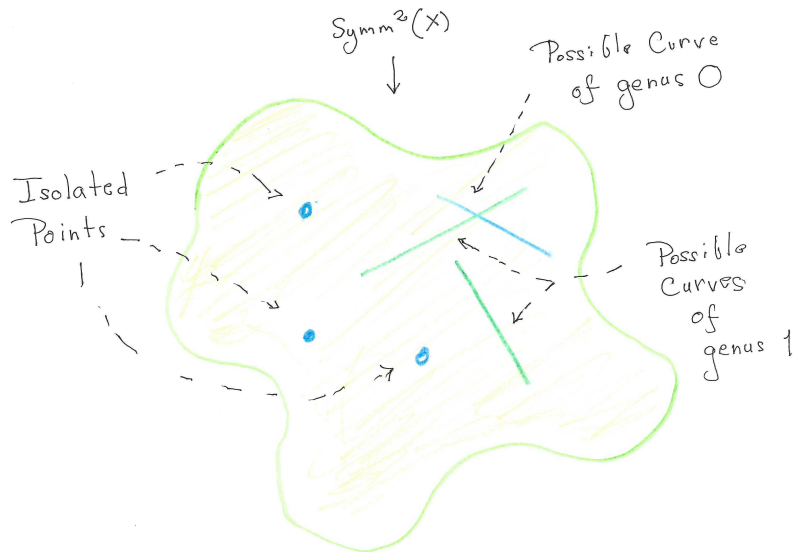 Symm²(X)
Possible Curve
of genus 0
Isolated
Points
Possible
Curves
of
genus 1